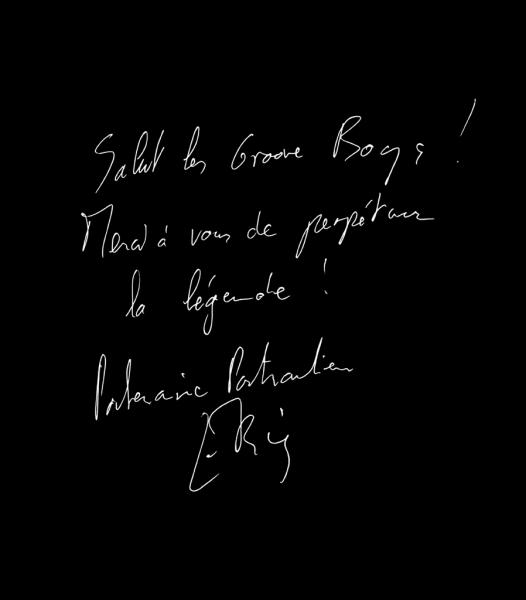 Salut les Groove Boys !
Merci à vous de perpétuer
la légende !
Partenaire Particulier